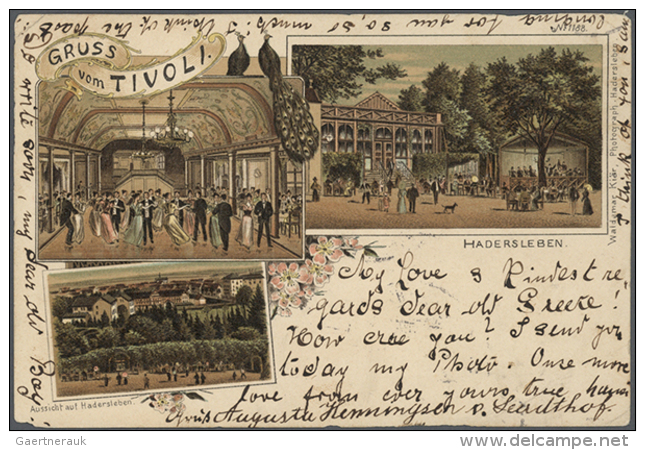 GRUSS
vom TIVOLI.
No 1168.
HADERSLEBEN.
Waldemar Kiär Photograph Hadersleben
Aussicht auf Hadersleben.
My Love & Kindest re
gards dear old
How are you? I send you
today my Photo. Once more
love from ever yours true
Gruß Augusta Henningsen v.
longing for you so, so much. I think of the
think of you, I am
my dear old Boy!
Gaertnerauk
www.delcampe.net